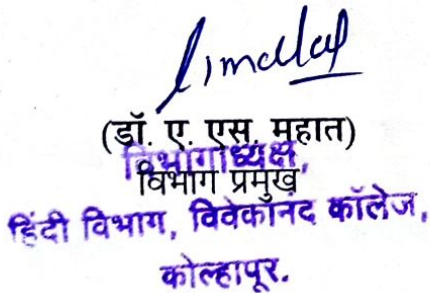 (डॉ. ए. एस. महात)
विभागाध्यक्ष,
विभाग प्रमुख
हिंदी विभाग, विवेकानंद कॉलेज,
कोल्हापूर.